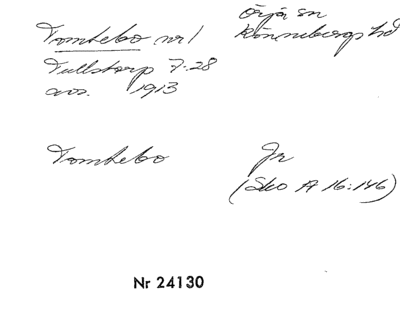 Tomtebo nr 1
Örja sn
Rönnebergs hd
Tullstorp 7.28
avs. 1913
Tomtebo
Jr
(Sko A 16:146)
Nr 24130